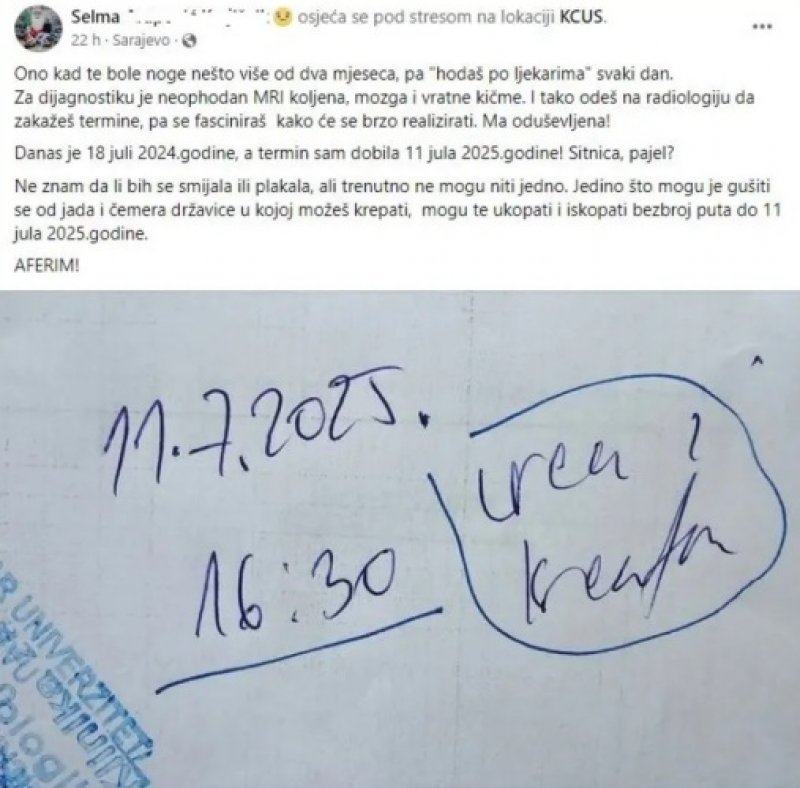 Selma
osjeća se pod stresom na lokaciji KCUS.
22 h · Sarajevo ·
Ono kad te bole noge nešto više od dva mjeseca, pa "hodaš po ljekarima" svaki dan.
Za dijagnostiku je neophodan MRI koljena, mozga i vratne kičme. I tako odeš na radiologiju da
zakažeš termine, pa se fasciniraš kako će se brzo realizirati. Ma oduševljena!
Danas je 18 juli 2024.godine, a termin sam dobila 11 jula 2025.godine! Sitnica, pajel?
Ne znam da li bih se smijala ili plakala, ali trenutno ne mogu niti jedno. Jedino što mogu je gušiti
se od jada i čemera državice u kojoj možeš krepati, mogu te ukopati i iskopati bezbroj puta do 11
jula 2025.godine.
AFERIM!
11.7.2025.
16:30
urea i
UNIVERZITET